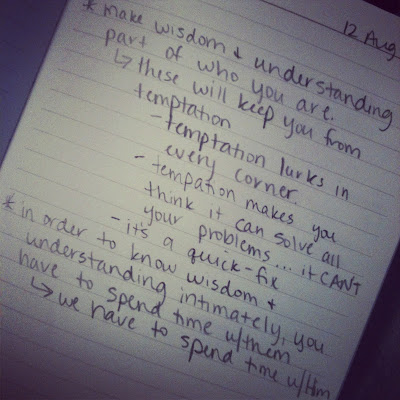 12 Aug
* make wisdom & understanding
part of who you are.
↳ these will keep you from
temptation
- temptation lurks in
every corner.
- tempation makes you
think it can solve all
your problems... it CAN'T
- it's a quick-fix
* in order to know wisdom &
understanding intimately, you
have to spend time w/them
↳ we have to spend time w/Him